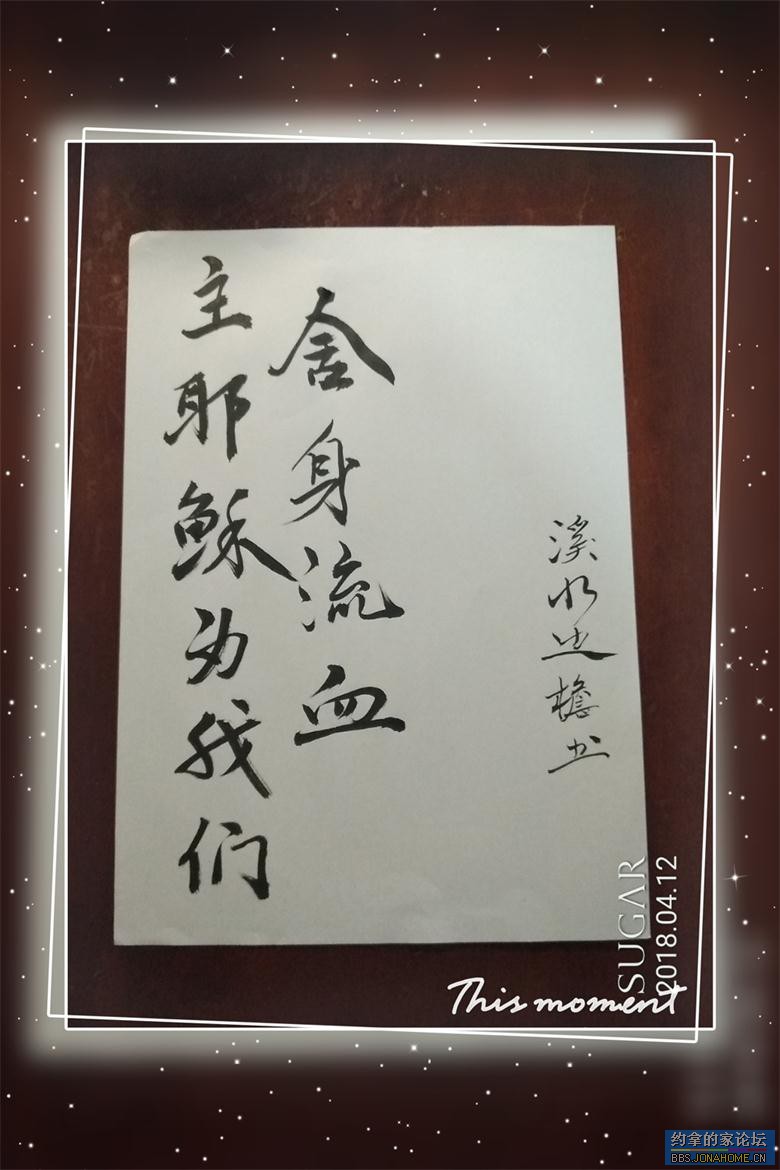 主耶稣为我们
舍身流血
溪水边
书
SUGAR
2018.04.12
This moment
约拿的家论坛
BBS.JONAHOME.CN